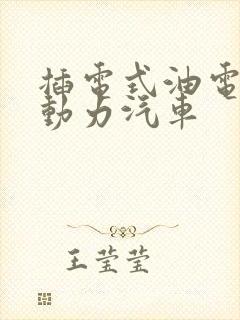 插電式油電
動力汽車
王莹莹